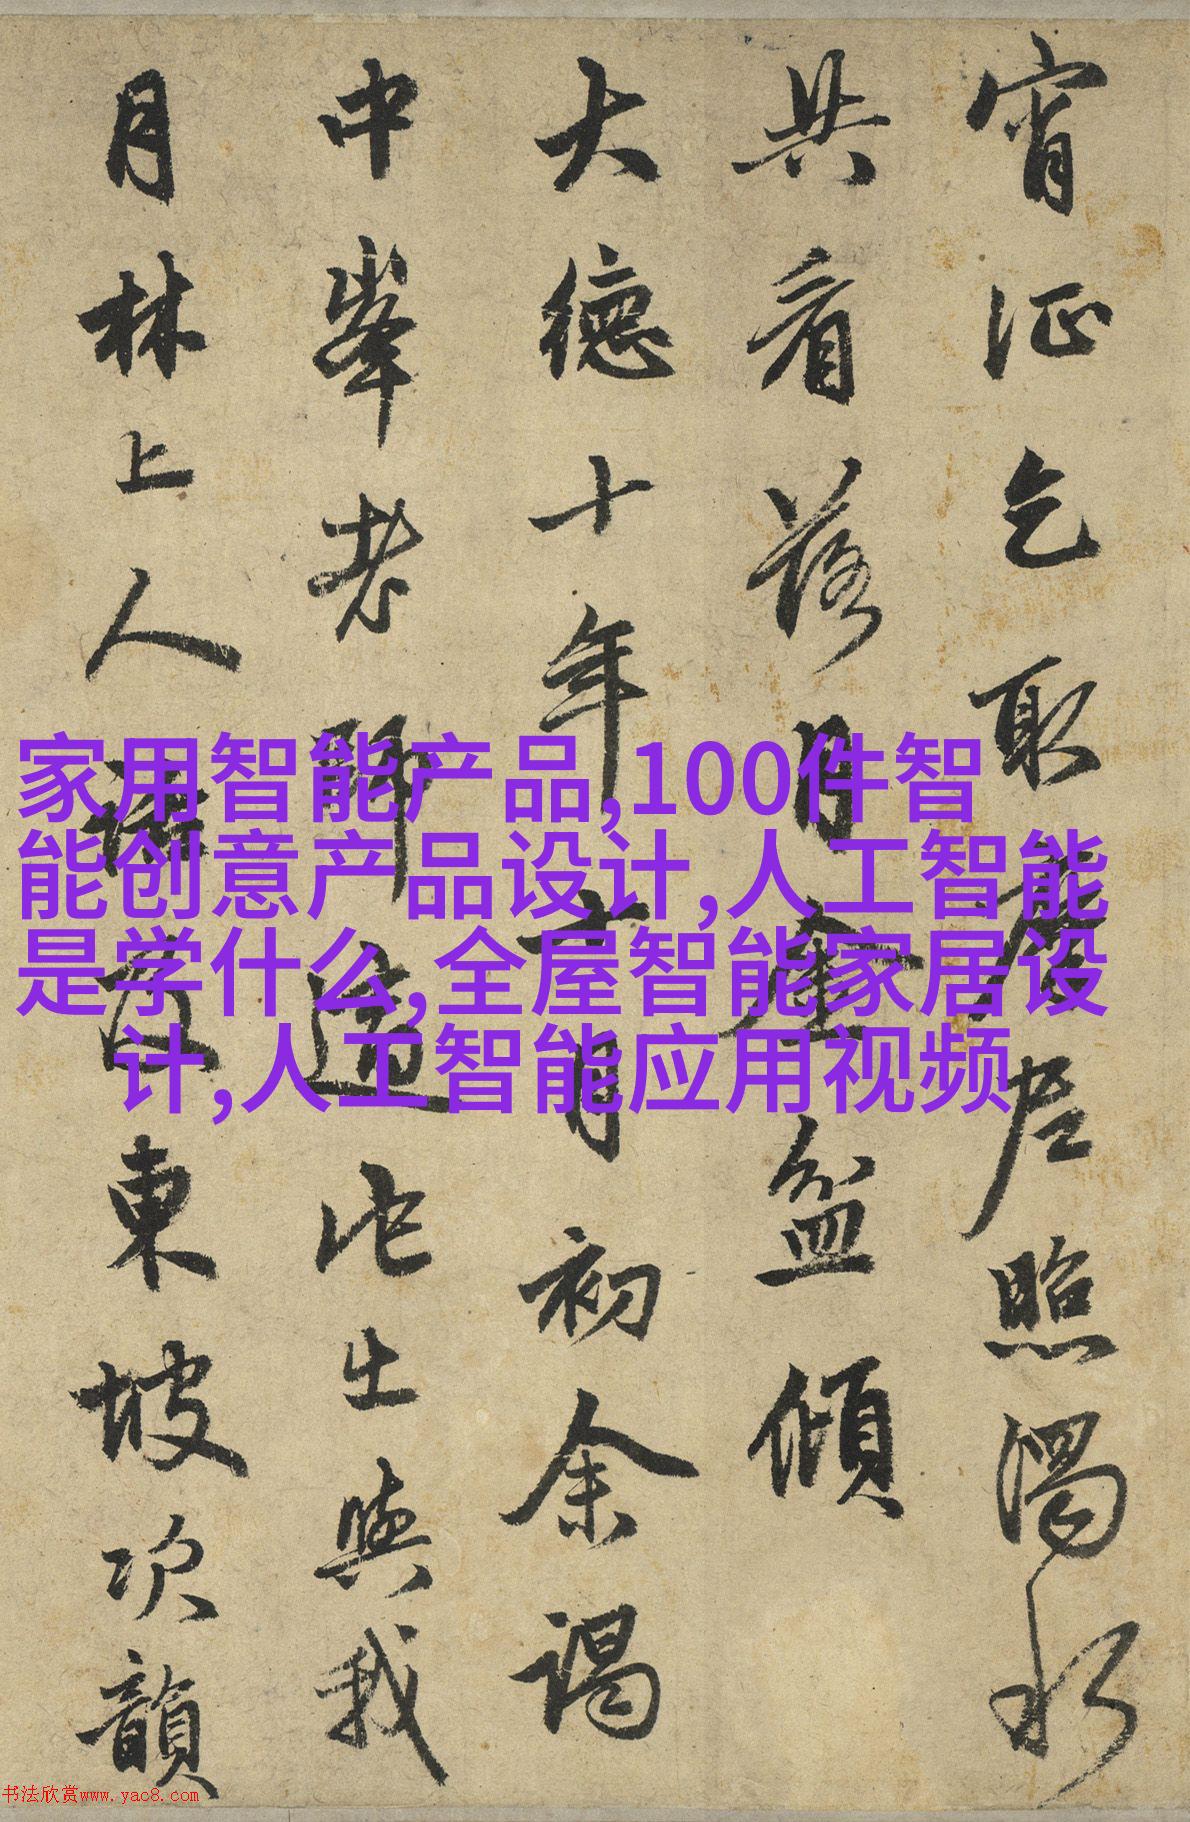 宵征乞取摩尼照濁水
共看落月金盆傾
大德十年月初余謁
中峯老師適他出與我
月林上人及東坡次韻
家用智能产品,100件智
能创意产品设计,人工智能
是学什么,全屋智能家居设
计,人工智能应用视频
书法欣赏www.yac8.com